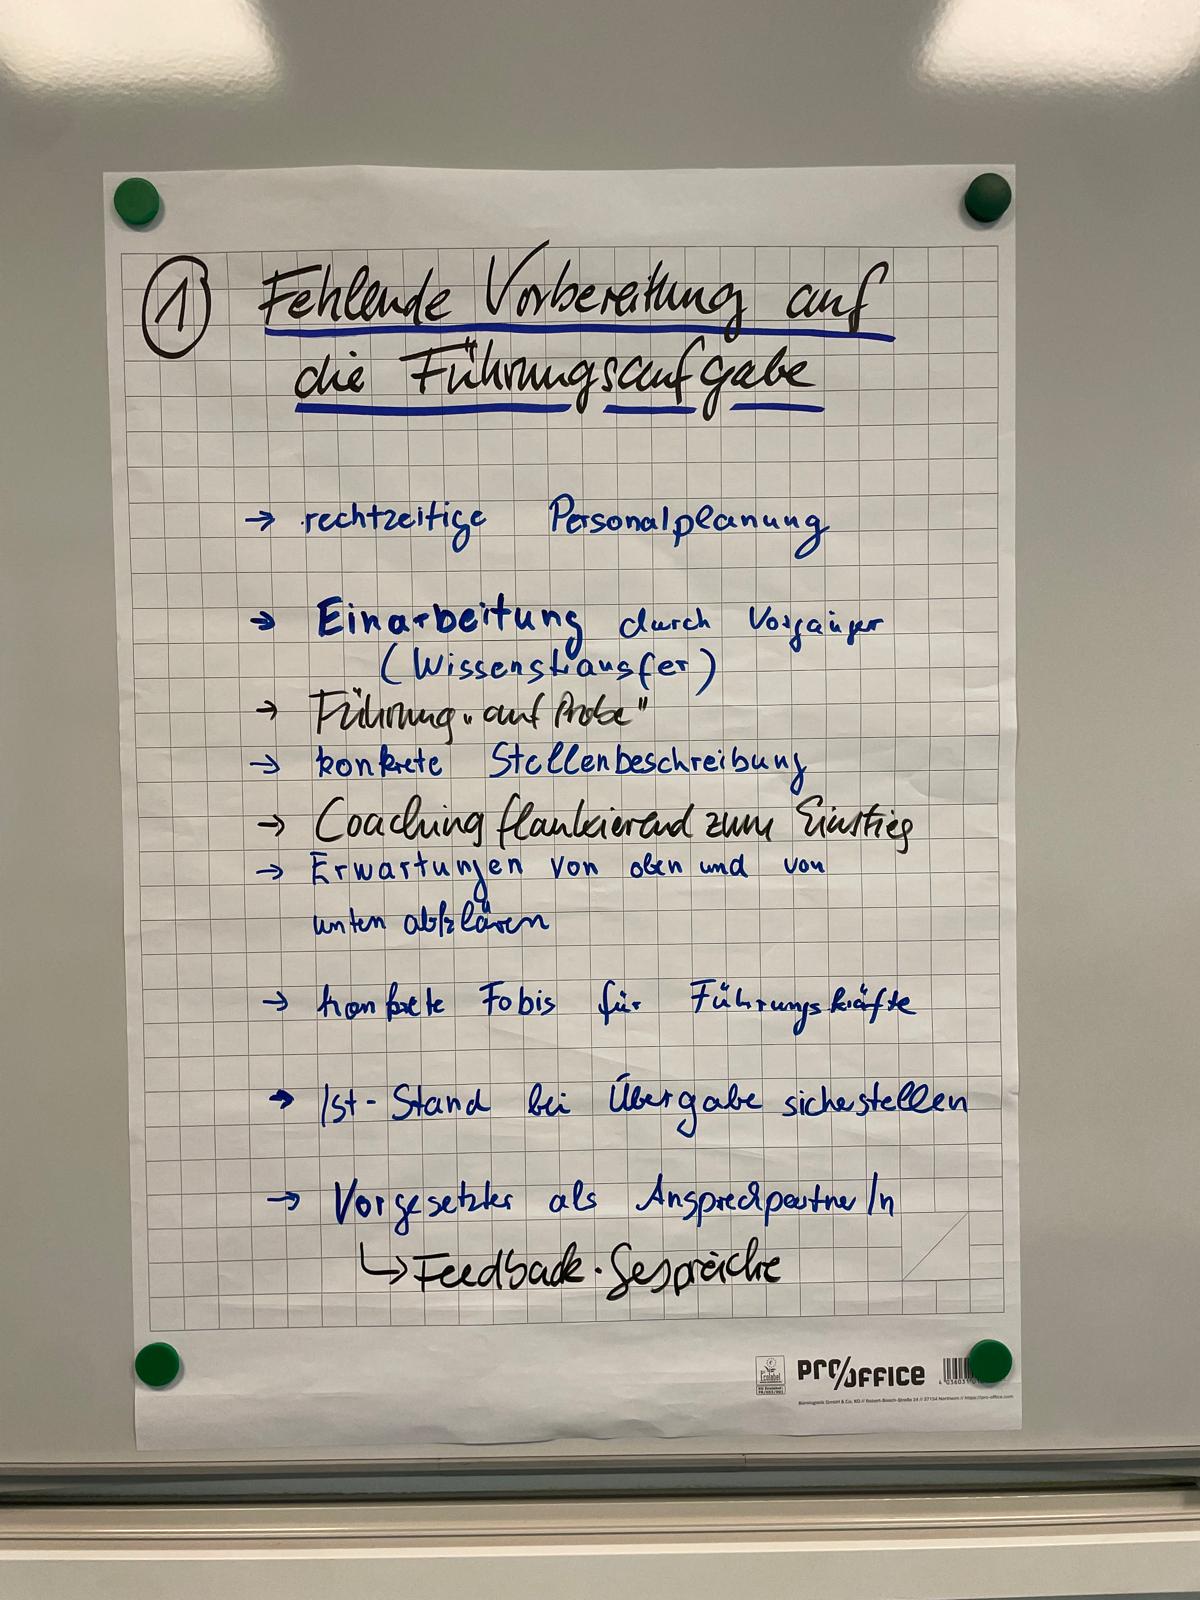 1 Fehlende Vorbereitung auf
die Führungsaufgabe
→ rechtzeitige Personalplanung
→ Einarbeitung durch Vorgänger
(Wissenstransfer)
→ Führung „auf Probe"
→ konkrete Stellenbeschreibung
→ Coaching flankierend zum Einstieg
→ Erwartungen von oben und von
unten abklären
→ konkrete Fobis für Führungskräfte
→ Ist-Stand bei Übergabe sicherstellen
→ Vorgesetzter als Ansprechpartner/n
↳ Feedback-Gespräche
PRO/OFFICE
Ecolabel